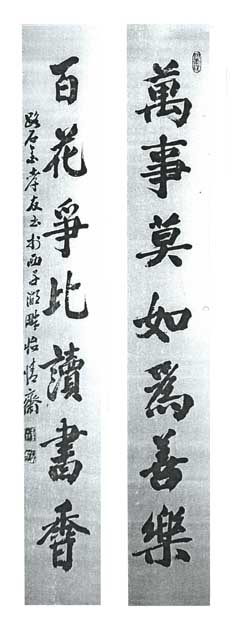 萬事莫如爲善樂
百花爭比讀書香
路石 孝友书於西子湖畔怡情齋